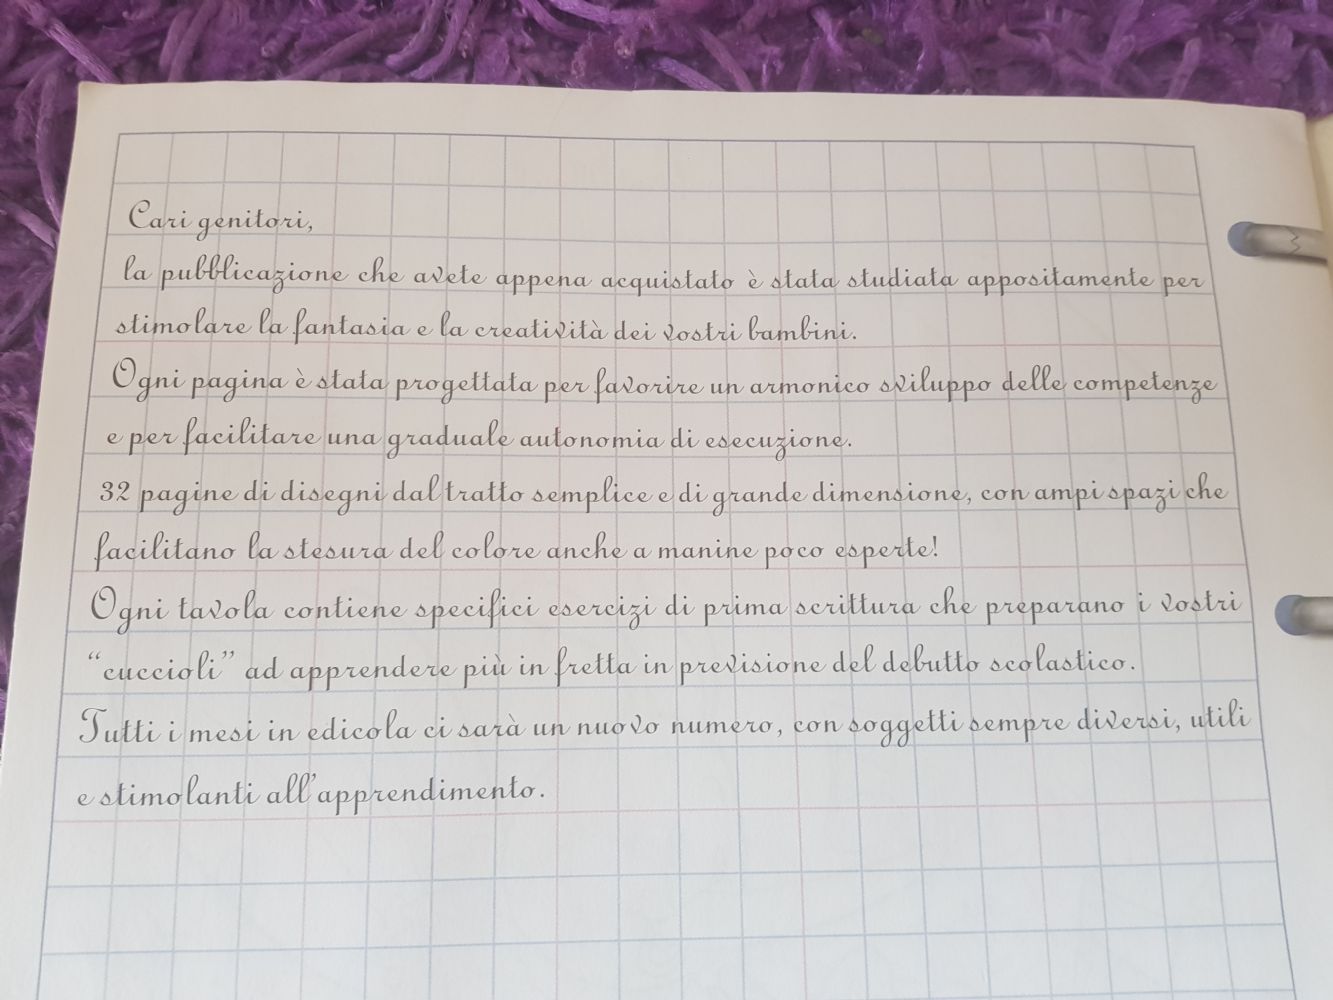 Cari genitori,
la pubblicazione che avete appena acquistato è stata studiata appositamente per
stimolare la fantasia e la creatività dei vostri bambini.
Ogni pagina è stata progettata per favorire un armonico sviluppo delle competenze
e per facilitare una graduale autonomia di esecuzione.
32 pagine di disegni dal tratto semplice e di grande dimensione, con ampi spazi che
facilitano la stesura del colore anche a manine poco esperte!
Ogni tavola contiene specifici esercizi di prima scrittura che preparano i vostri
“cuccioli” ad apprendere più in fretta in previsione del debutto scolastico.
Tutti i mesi in edicola ci sarà un nuovo numero, con soggetti sempre diversi, utili
e stimolanti all'apprendimento.